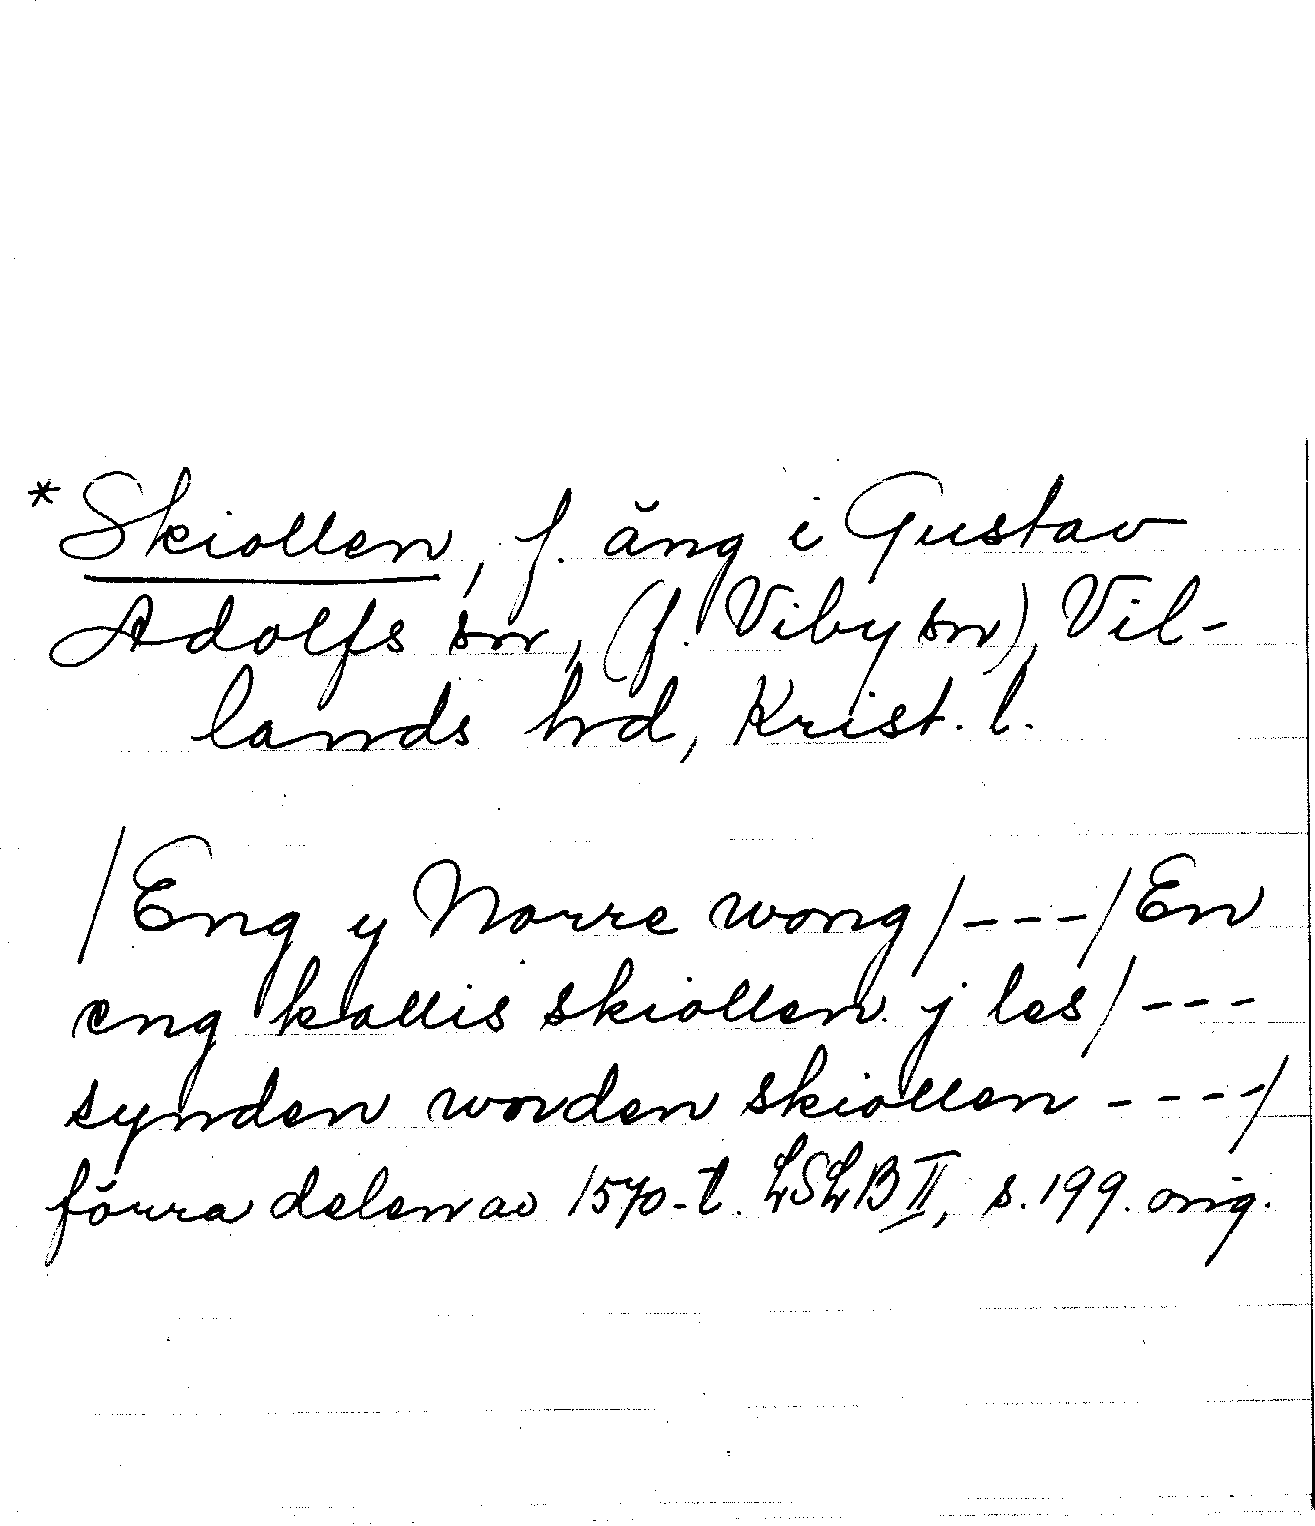 *Skiollen, f. äng i Gustav
Adolfs sn, (f. Viby sn), Vil-
lands hd, Krist. l.
/Eng y Norre wong/---/En
eng kallis skiollen j les/---
synden worden skiollen ----/
förra delen av 1570-t. LSLB II, s. 199. orig.